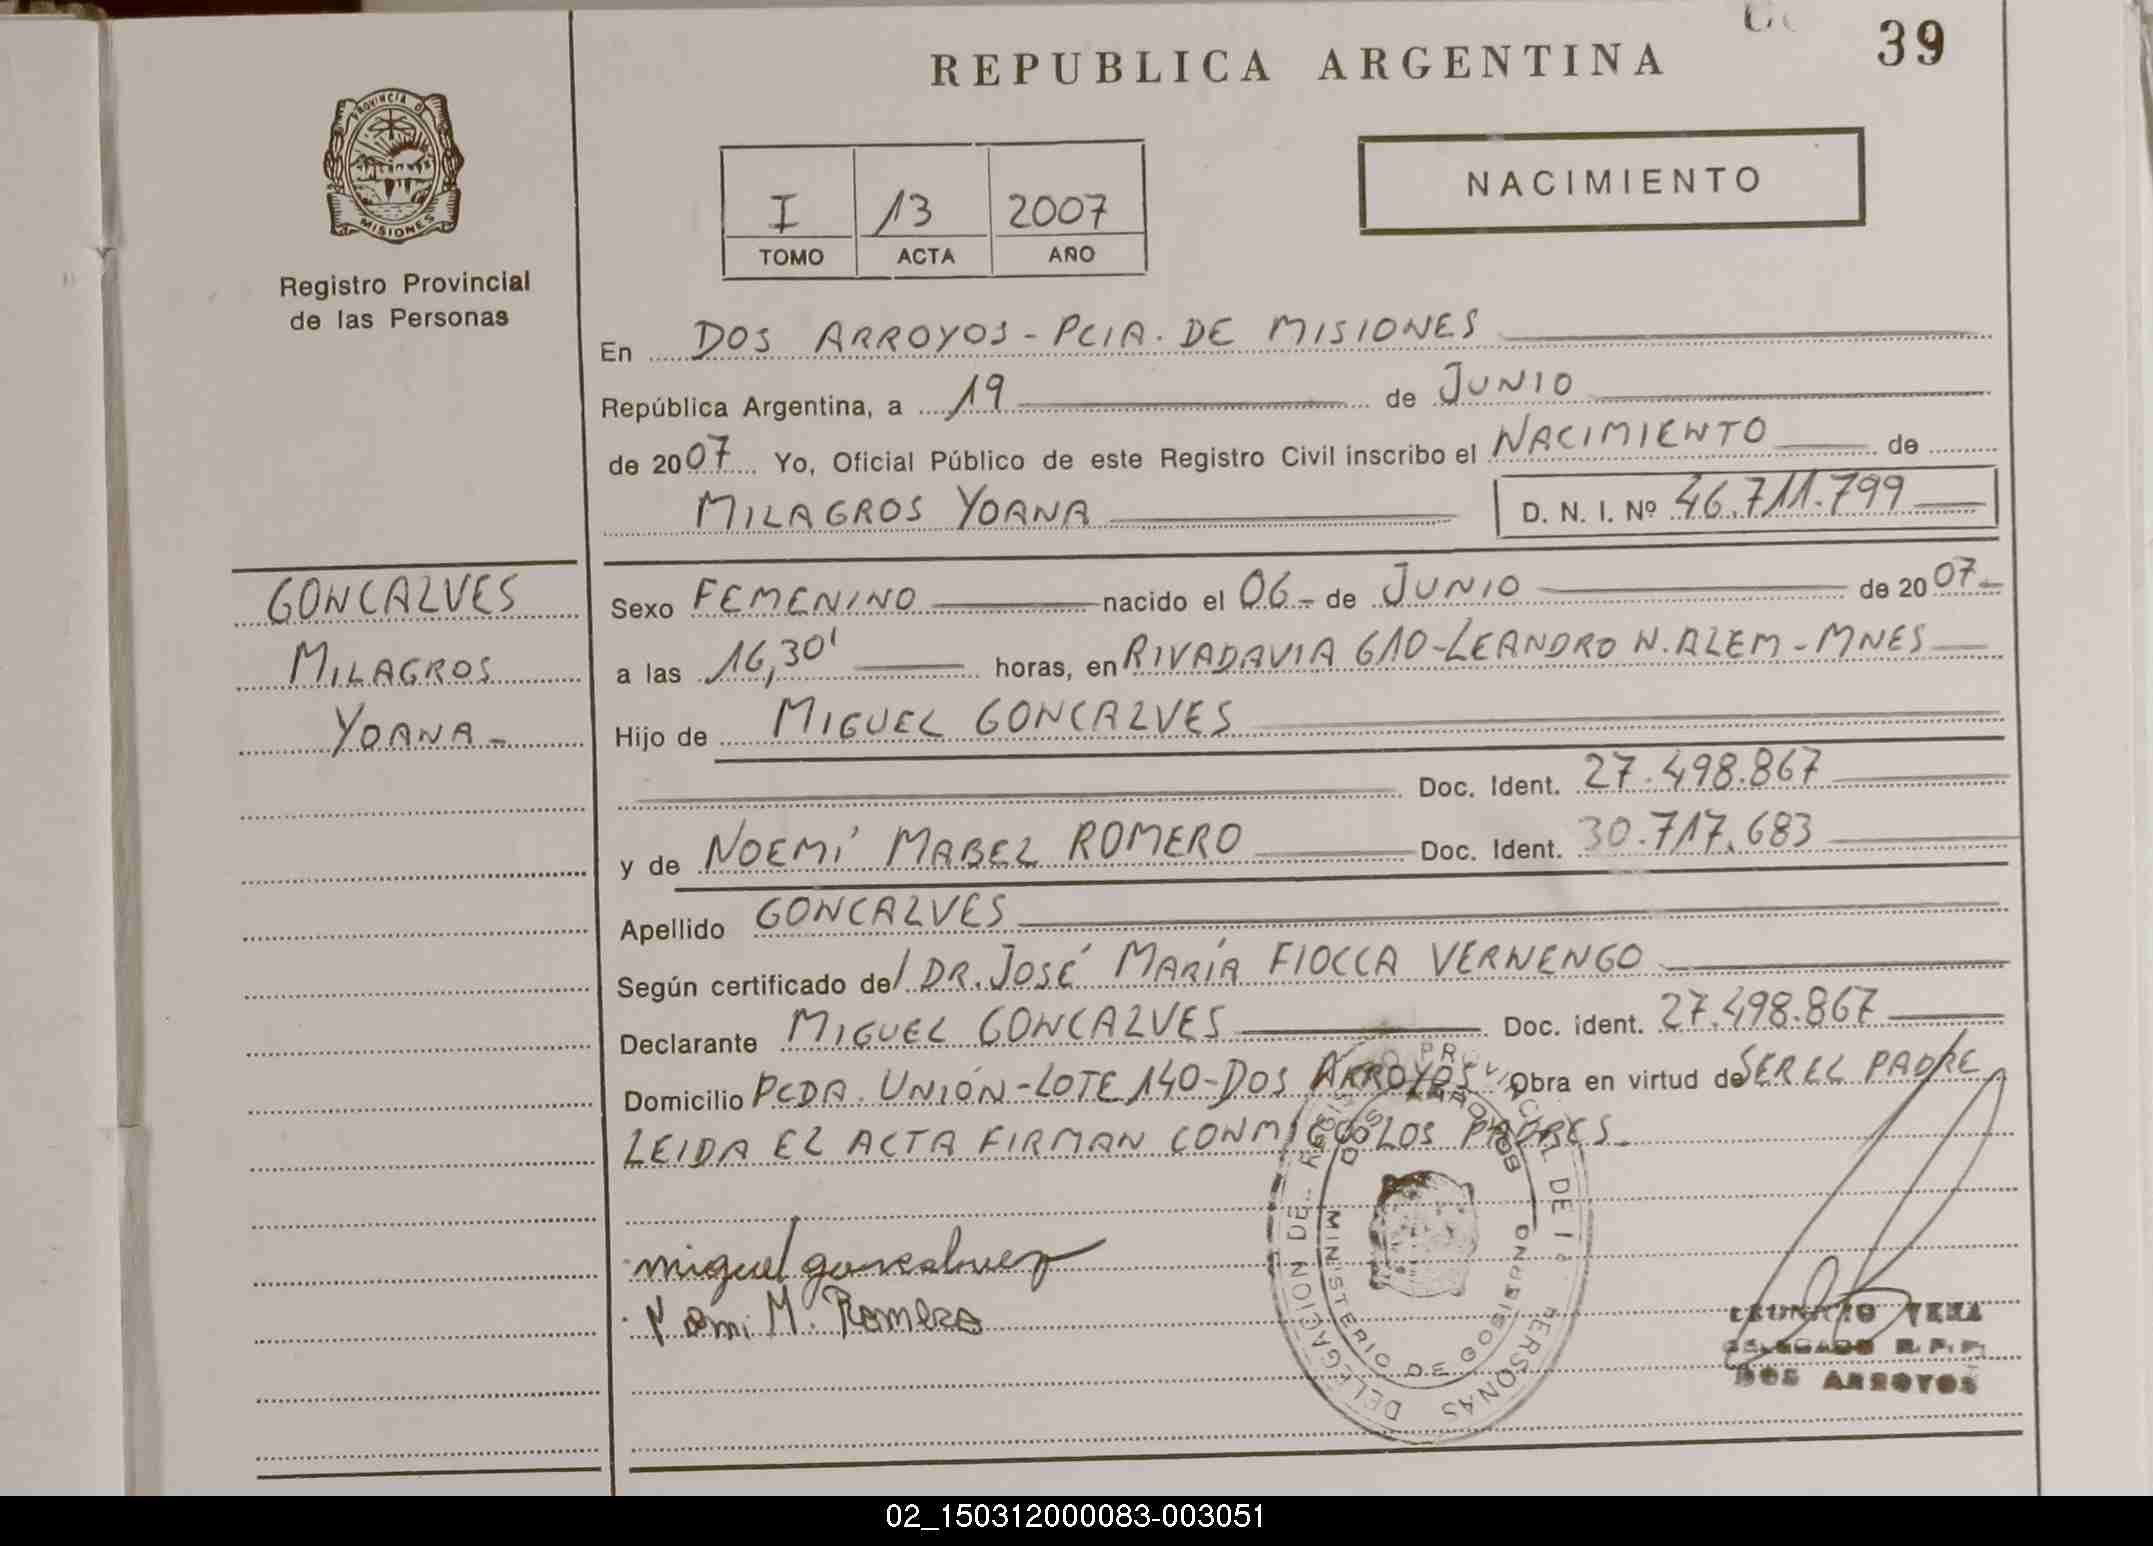 39
REPUBLICA ARGENTINA
PROVINCIA DE
MISIONES
Registro Provincial
de las Personas
I 13 2007
TOMO ACTA AÑO
NACIMIENTO
En DOS ARROYOS - PCIA. DE MISIONES
República Argentina, a 19 de JUNIO
de 2007 Yo, Oficial Público de este Registro Civil inscribo el NACIMIENTO de
MILAGROS YOANA D. N. I. Nº 46.711.799
GONCALVES
MILAGROS
YOANA -
Sexo FEMENINO nacido el 06 - de JUNIO de 2007 -
a las 16,30' horas, en RIVADAVIA 610 - LEANDRO N. ALEM - MNES
Hijo de MIGUEL GONCALVES
Doc. Ident. 27.498.867
y de NOEMÍ MABEL ROMERO Doc. Ident. 30.717.683
Apellido GONCALVES
Según certificado de/ DR. JOSÉ MARÍA FIOCCA VERNENGO
Declarante MIGUEL GONCALVES Doc. ident. 27.498.867
Domicilio PCDA. UNIÓN - LOTE 140 - DOS ARROYOS Obra en virtud de SER EL PADRE
LEIDA EL ACTA FIRMAN CONMIGO LOS PADRES -
miguel goncalvez
Noemi M. Romero
DELEGACION DE REGISTRO PROVINCIAL DE PERSONAS
DOS ARROYOS
MINISTERIO DE GOBIERNO
DELEGADO R.P.P.
DOS ARROYOS
02_150312000083-003051